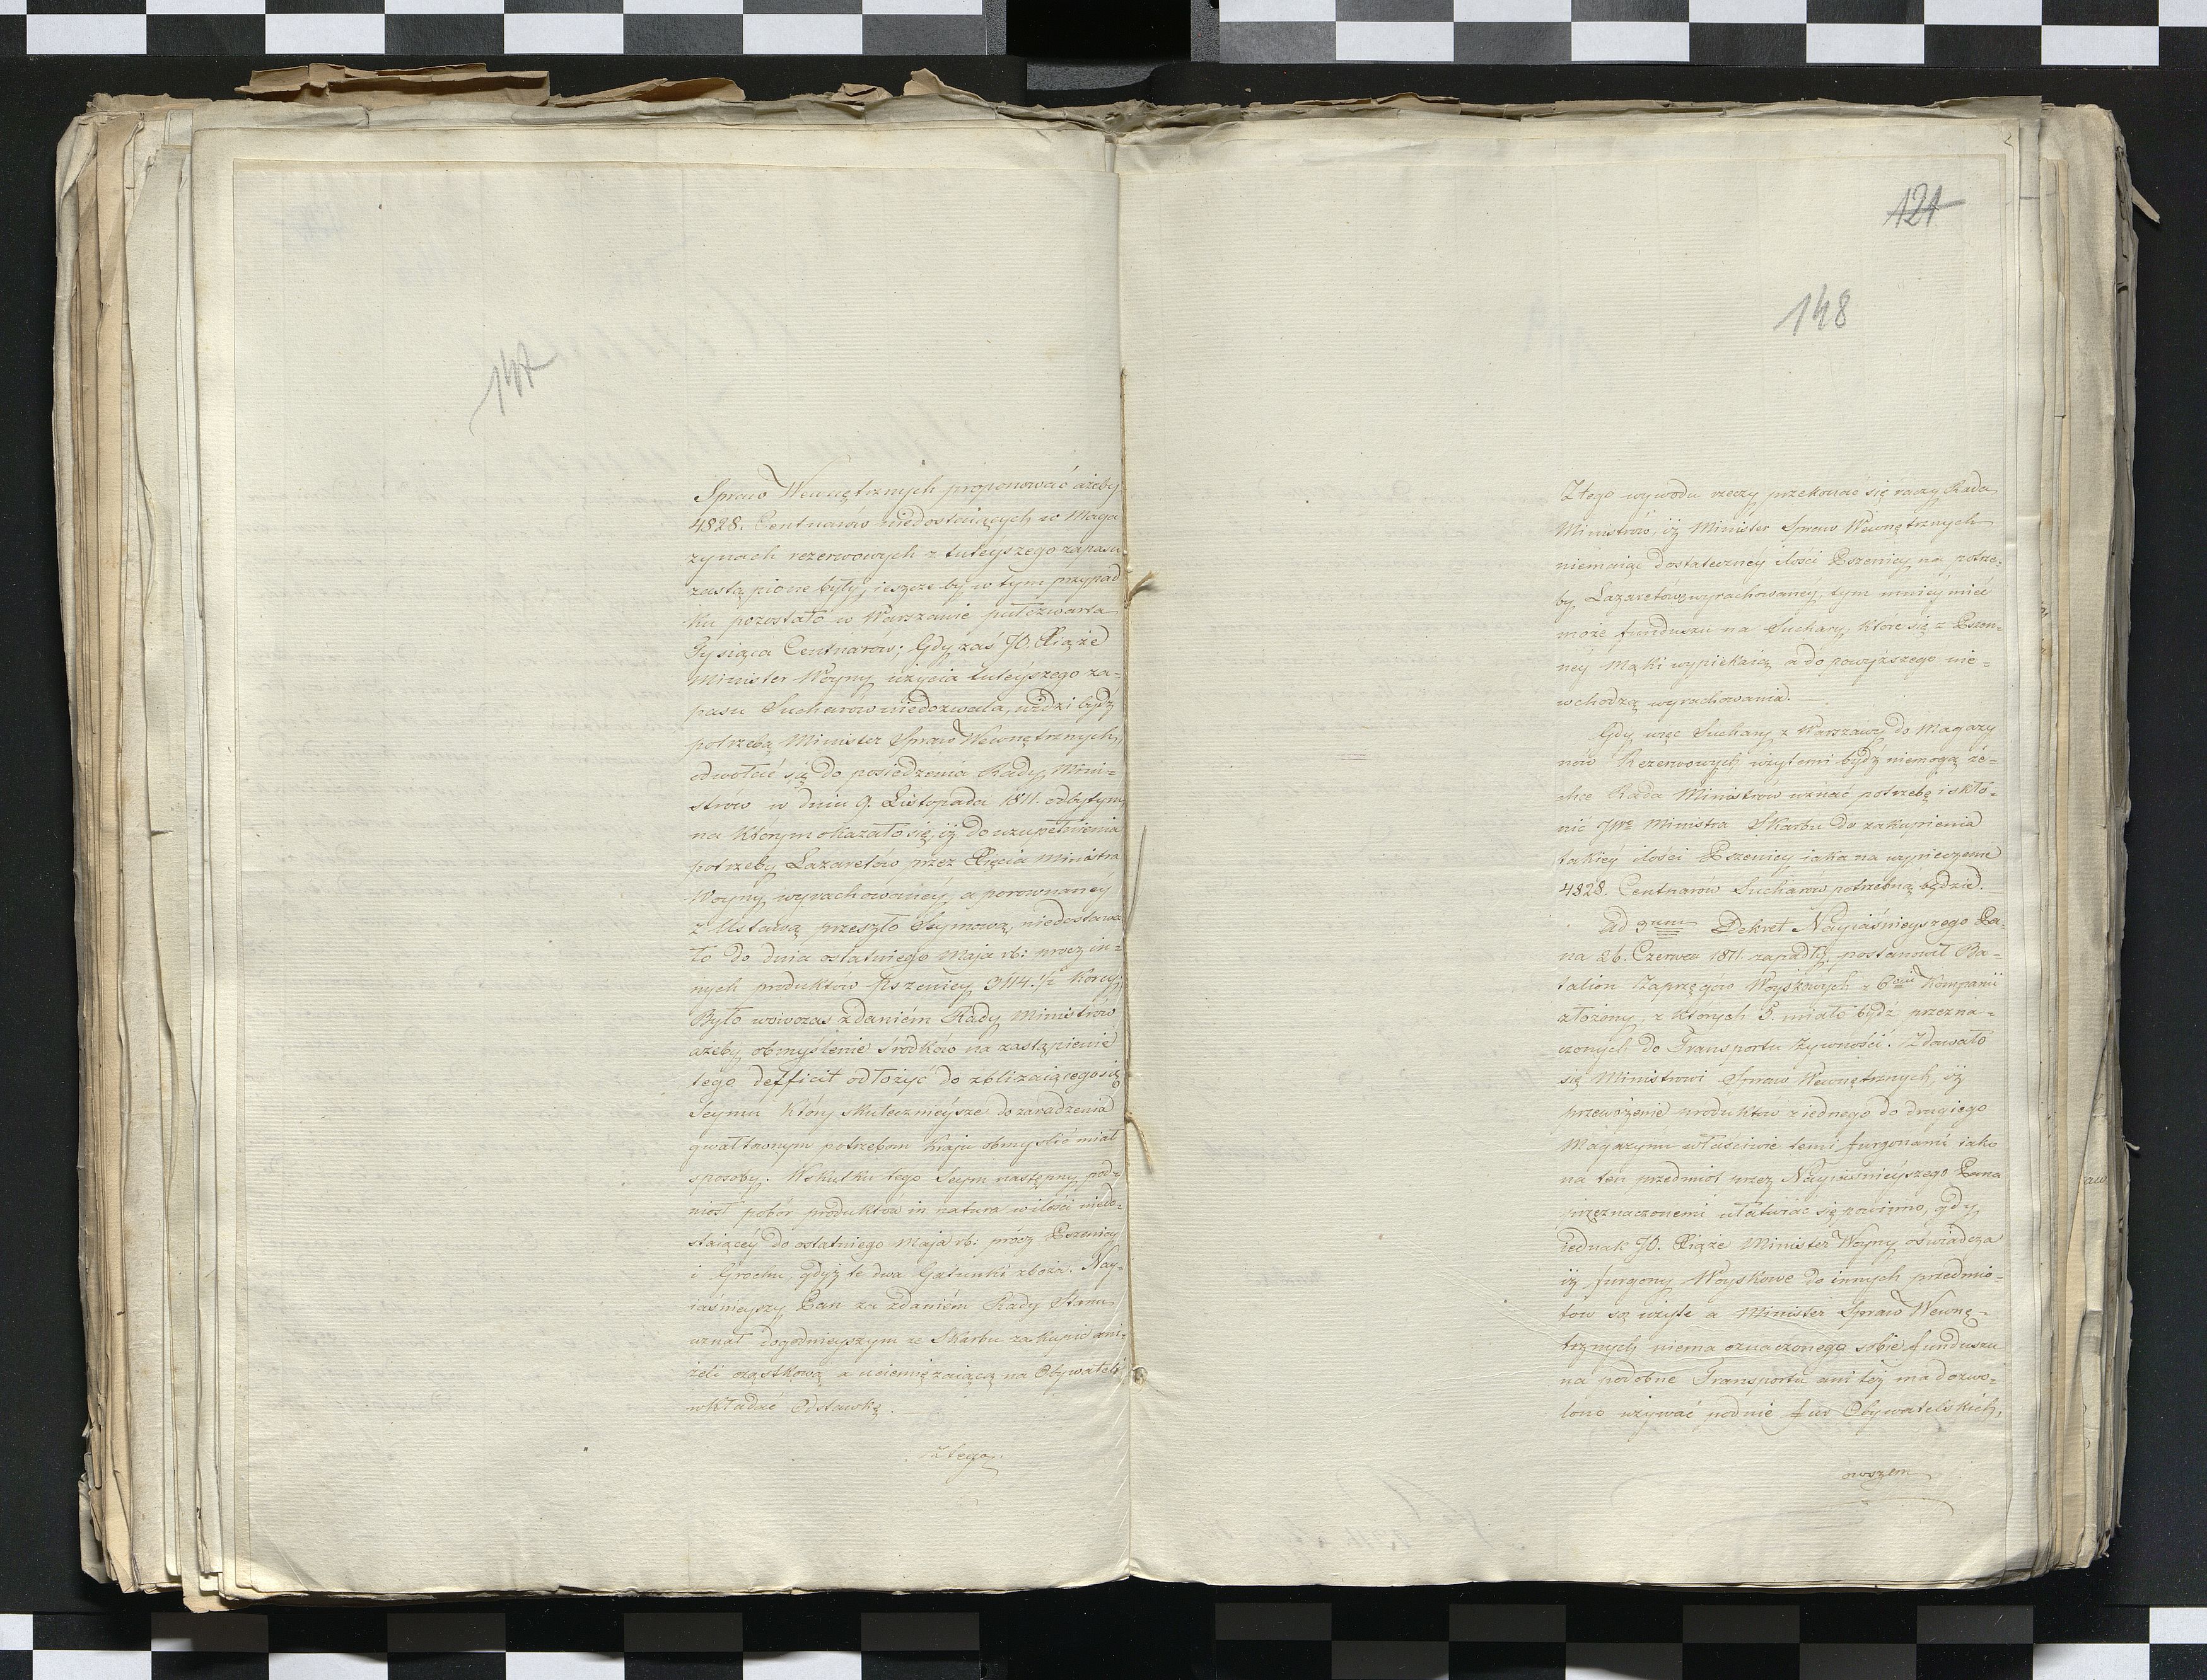 147
Spraw Wewnętrznych proponować ażeby
4828. Centnarów niedostaiących w Maga
zynach rezerwowych z tuteyszego zapasu
zastąpione były, ieszcze by w tym przypad
ku pozostało w Warszawie pułczwarta
Tysiąca Centnarów; Gdy zaś JO. Xiąże
Minister Woyny użycia tuteyszego za=
pasu Sucharów niedozwala, widzi bydź
potrzebą Minister Spraw Wewnętrznych,
odwołać się do posiedzenia Rady Mini=
strów w dniu 9. Listopada 1811. odbytym
na którym okazało się, iż do uzupełnienia
potrzeby Lazaretów przez Xięcia Ministra
Woyny wyrachowaney, a porownaney
z Ustawą przeszło Seymową, niedostawa
ło do dnia ostatniego Maja rb: procz in=
nych produktów Pszenicy 3114.½ Korcy.
Było wowczas zdaniem Rady Ministrów
ażeby obmyślenie środków na zastąpienie
tego defficit odłożyć do zbliżaiącego się
Seymu który skutecznieysze do zaradzenia
gwałtownym potrzebom Kraju obmyślić miał
sposoby. Wskutku tego Seym następny, pod=
niosł pobór produktów in natura w ilości niedo=
staiącey do ostatniego Maja rb: prócz Pszenicy
i Grochu, gdyż te dwa Gatunki zboża. Nay=
iaśnieyszy Pan za zdaniem Rady Stanu
uznał dogodnieyszym ze Skarbu zakupić ani=
żeli cząstkową a uciemiężaiącą na Obywateli
wkładać Odstawkę.
Ztego
121
148
Ztego wywodu rzeczy przekonać się raczy Rada
Ministrów, iż Minister Spraw Wewnętrznych
niemaiąc dostateczney ilości Pszenicy na potrze=
by Lazaretów wyrachowaney, tym mniey mieć
może funduszu na Suchary, które się z Pszen=
ney Mąki wypiekaią a do powyższego nie=
wchodzą wyrachowania.
Gdy więc Suchary z Warszawy do Magazy
nów Rezerwowych użytemi bydź niemogą ze=
chce Rada Ministrow uznać potrzebę i skło=
nić JWo Ministra Skarbu do zakupienia
takiey ilości Pszenicy iaka na wypieczenie
4828. Centnarów Sucharow potrzebną będzie.
Ad 3um Dekret Nayiaśnieyszego Pa=
na 26. Czerwca 1811. zapadły, postanowił Ba=
talion Zaprzęgow Woyskowych z 6ciu Kompanii
złożony, z których 5. miało bydź przezna=
czonych do Transportu Żywności. Zdawało
się Ministrowi Spraw Wewnętrznych, iż
przewożenie produktów z iednego do drugiego
Magazynu właściwie temi furgonami iako
na ten przedmiot przez Nayiaśnieyszego Pana
przeznaczonemi ułatwiać się powinno, gdy
iednak JO. Xiąże Minister Woyny oświadcza
iż furgony Woyskowe do innych przedmio=
tow są użyte a Minister Spraw Wewnę=
trznych niema oznaczonego sobie funduszu
na podobne Transporta ani też ma dozwo=
lone używać podnie fur Obywatelskich,
owszem